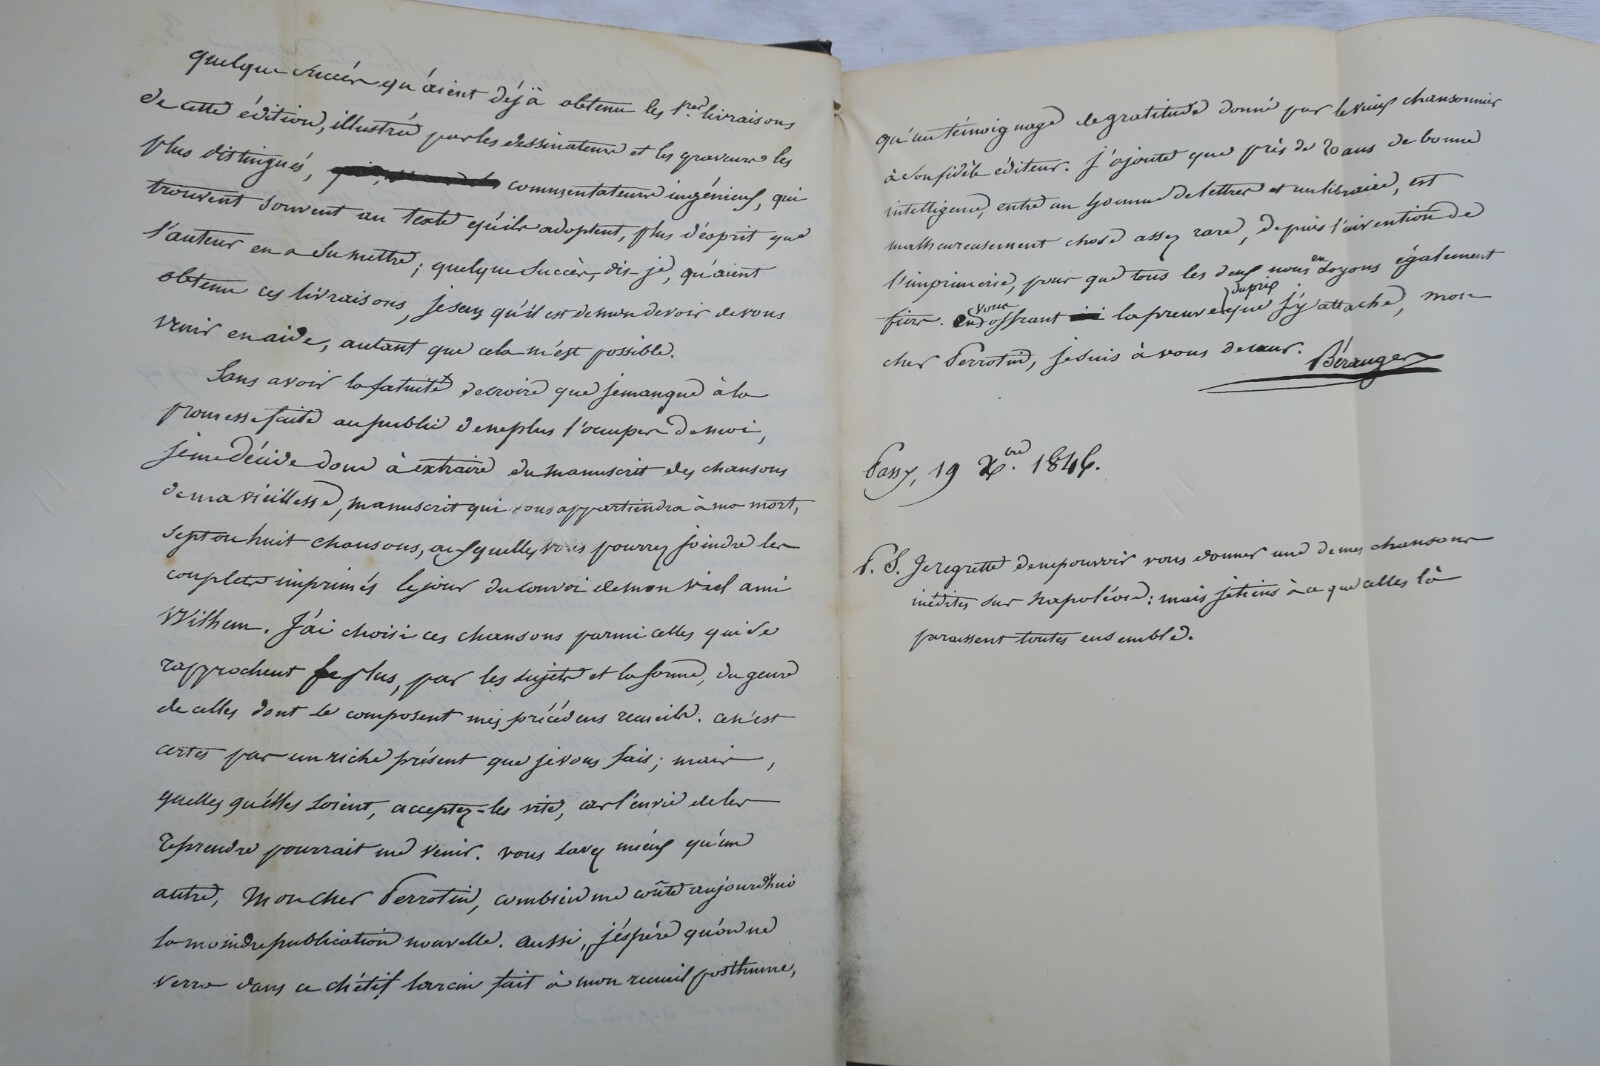 quelque succès qu'aient déjà obtenu les 1res livraisons
de cette édition, illustrée par les dessinateurs et les graveurs les
plus distingués, commentateurs ingénieux, qui
trouvent souvent au texte qu'ils adoptent, plus d'esprit que
l'auteur en a su mettre; quelque succès, dis-je, qu'aient
obtenu ces livraisons, je sens qu'il est de mon devoir de vous
venir en aide, autant que cela m'est possible.
Sans avoir la fatuité de croire que je manque à la
promesse faite au public de ne plus l'occuper de moi,
je me décide donc à extraire du manuscrit des chansons
de ma vieillesse, manuscrit qui vous appartiendra à ma mort,
sept ou huit chansons, auxquelles vous pourrez joindre les
couplets imprimés le jour du convoi de mon vieil ami
Wilhem. J'ai choisi ces chansons parmi celles qui se
rapprochent le plus, par les sujets et la forme, du genre
de celles dont se composent mes précédens recueils. Ce n'est
certes pas un riche présent que je vous fais; mais,
quelles qu'elles soient, acceptez-les vite, car l'envie de les
reprendre pourrait me venir. Vous savez mieux qu'un
autre, mon cher Perrotin, combien me coûte aujourd'hui
la moindre publication nouvelle. Aussi, j'espère qu'on ne
verra dans ce chétif larcin fait à mon recueil posthume,
qu'un témoignage de gratitude donné par le vieux chansonnier
à son fidèle éditeur. J'ajoute que près de 20 ans de bonne
intelligence, entre un homme de lettres et un libraire, est
malheureusement chose assez rare, depuis l'invention de
l'imprimerie, pour que tous les deux nous en soyons également
fiers. en vous offrant la preuve du prix que j'y attache, mon
cher Perrotin, je suis à vous de cœur. Béranger
Passy, 19 Xbre. 1846.
P. S. Je regrette de ne pouvoir vous donner une de mes chansons
inédites sur Napoléon: mais je tiens à ce que celles là
paraissent toutes ensemble.